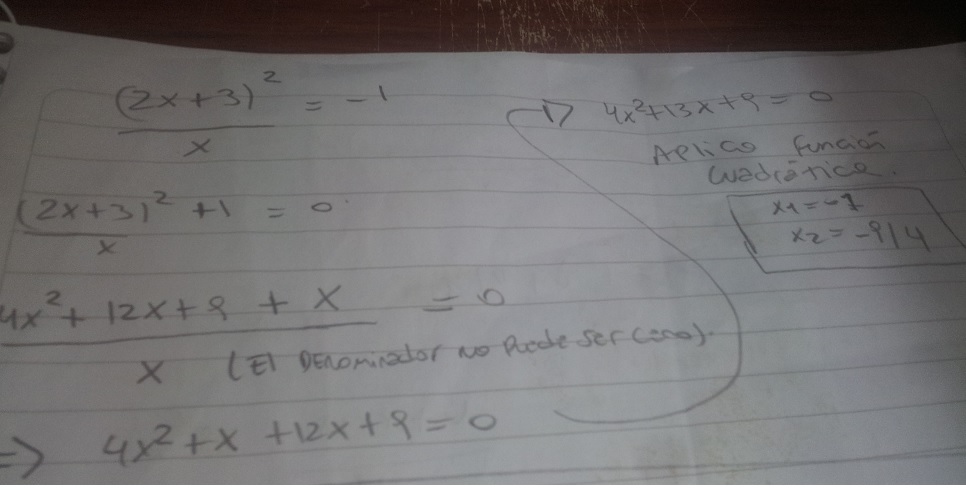 (2x+3)² / x = -1
(2x+3)² / x + 1 = 0
4x² + 12x + 9 + x / x = 0
(El Denominador no puede ser cero).
=> 4x² + x + 12x + 9 = 0
4x² + 13x + 9 = 0
Aplico función
cuadrática.
x1 = -1
x2 = -9/4